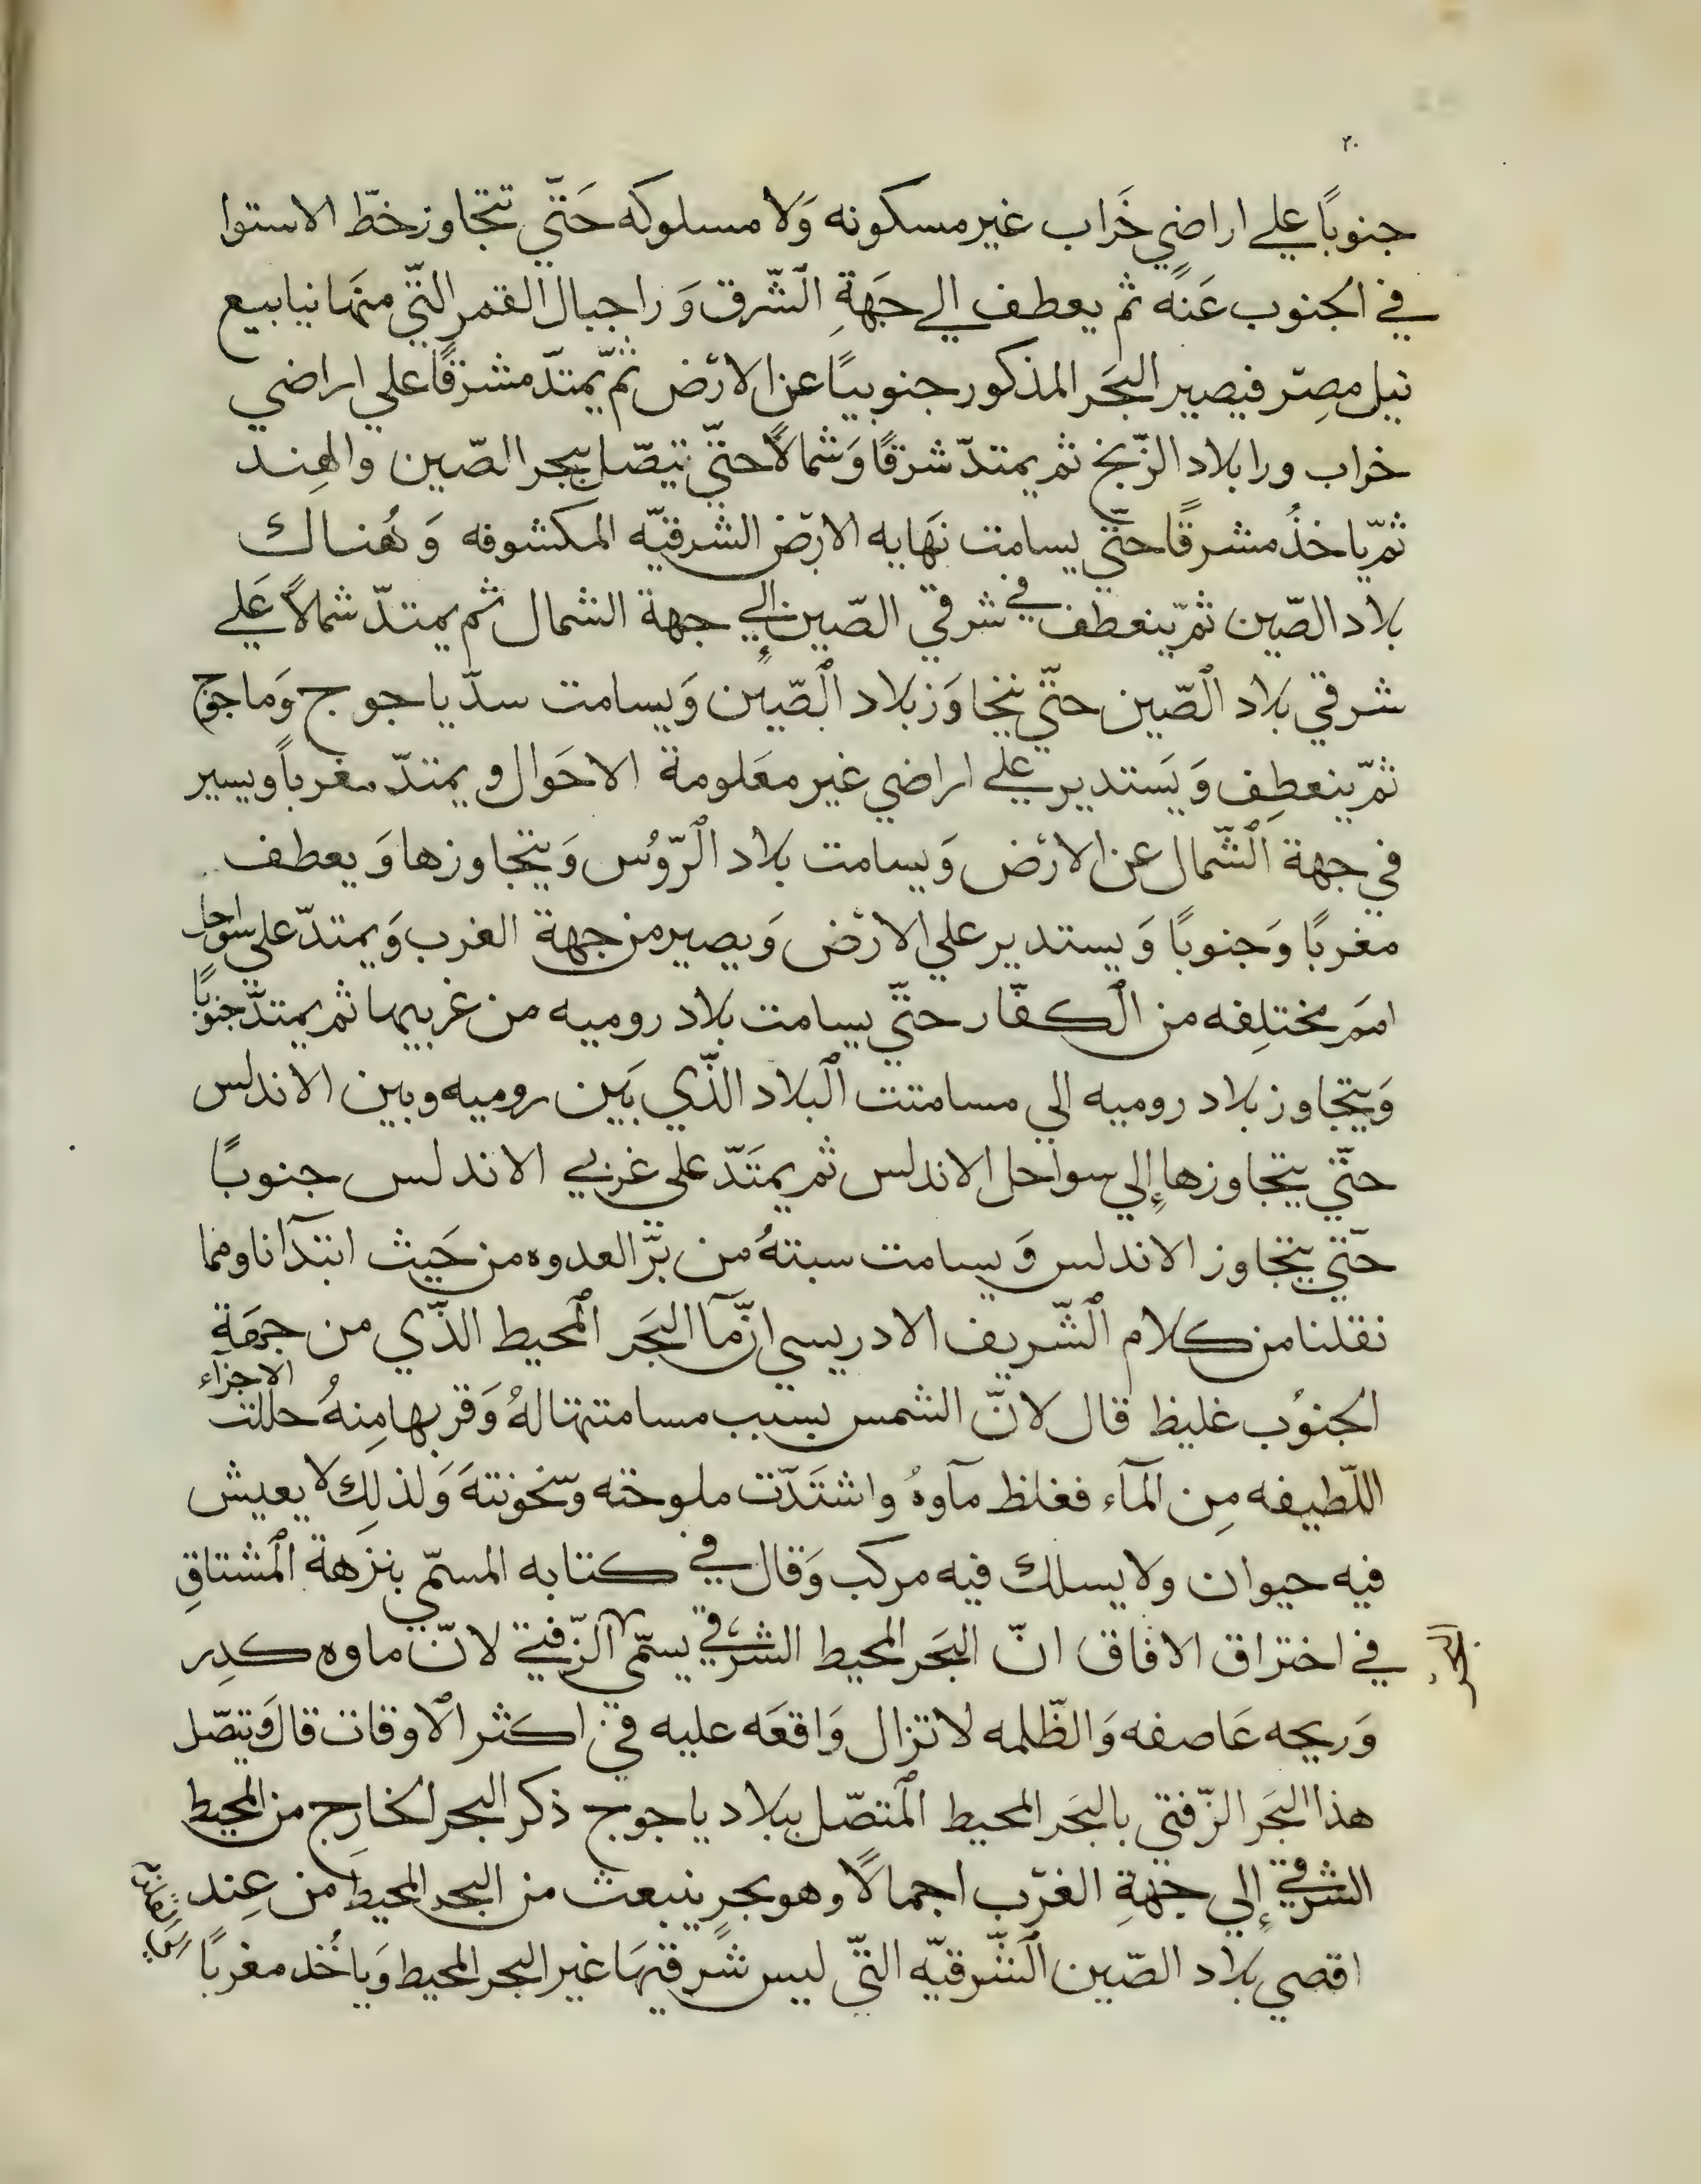 ٢٠
جنوبًا علي اراضي خَراب غير مسكونه وَلا مسلوكه حَتّي تتجاوز خطّ الاستوا
في الجنوب عَنهُ ثم يعطف الي جَهةِ الشّرق وَرا جبال القمر التّي منهَا نيابيع
نيل مصِر فيصير البَحر المذكور جنوبيًا عن الارْض ثمّ يمتدّ مشرقًا علي اراضي
خراب ورا بلاد الزّنج ثم يمتدّ شرقًا وَشمالاً حتيّ يتصّل ببحر الصّين والهِند
ثمّ ياخذُ مشرقًا حتّي يسامت نهَايه الارض الشرقيّه المكشوفه وَهُناك
بلاد الصّين ثمّ ينعطف في شرقي الصّين إلي جهة الشمال ثم يمتدّ شمالاً عَلي
شرقي بلاد الصّين حتيّ يتجاوَز بلاد الصّين وَيسامت سدّ ياجوج وَماجوج
ثمّ ينعطِف وَيَستدير علي اراضي غير معَلومة الاحَوال ويمتدّ مغرباً ويسير
في جهة الشّمال عن الارْض وَيسامت بلاد الرّوُس وَيتجاوزها وَيعطف
مغربًا وَجنوبًا وَيستدير علي الارْض وَيصير من جهة الغرب وَيمتدّ علي سواحل
امَم مختلِفه من الكفّار حتيّ يسامت بلاد روميه من غربيها ثم يمتدّ جنوبًا
وَيتجاوز بلاد روميه الي مسامتت البلاد الذّي بَين روميه وبين الاندلس
حتّي يتجاوزها إلي سواحل الاندلس ثم يمتَدّ علي غربي الاندلس جنوبًا
حتّي يتجاوز الاندلس وَيسامت سبتهُ من برّ العدوه من حَيث ابتدآنا ومما
نقلنا من كلام الشّريف الادريسي انّمآ البَحر المحيط الذّي من جهَةِ
الجنوُب غليظ قال لانّ الشمس بسبب مسامتتها لهُ وَقربها مِنهُ حللت الاجزآء
اللّطيفه مِن المآء فغلظ مآوهُ واشتَدّت ملوحته وسخونتهَ وَلذلِك لا يعيش
فيه حيوان ولا يسلك فيه مركب وَقال في كتابه المسمّي بنزهة المشتاقِ
في اختراق الافاق انّ البَحر المحيط الشرقي يسمّي البحر الزّفتي لانّ ماوه كدِر
وَريحه عَاصفه وَالظّلمه لا تزال وَاقعَه عليه في اكثر الاوقات قال وَتتصّل
هذا البَحر الزّفتي بالبَحر المحيط المتصّل ببلاد ياجوج ذكر البحر الخارِج من المحيط
الشرقي إلي جهةِ الغرب اجمالاً وهو بحرٍ ينبعث من البحر المحيط من عِند
اقصي بلاد الصّين الشّرقيّه التّي ليس شرقيهَا غير البحر المحيط وَياخُذ مغربًا